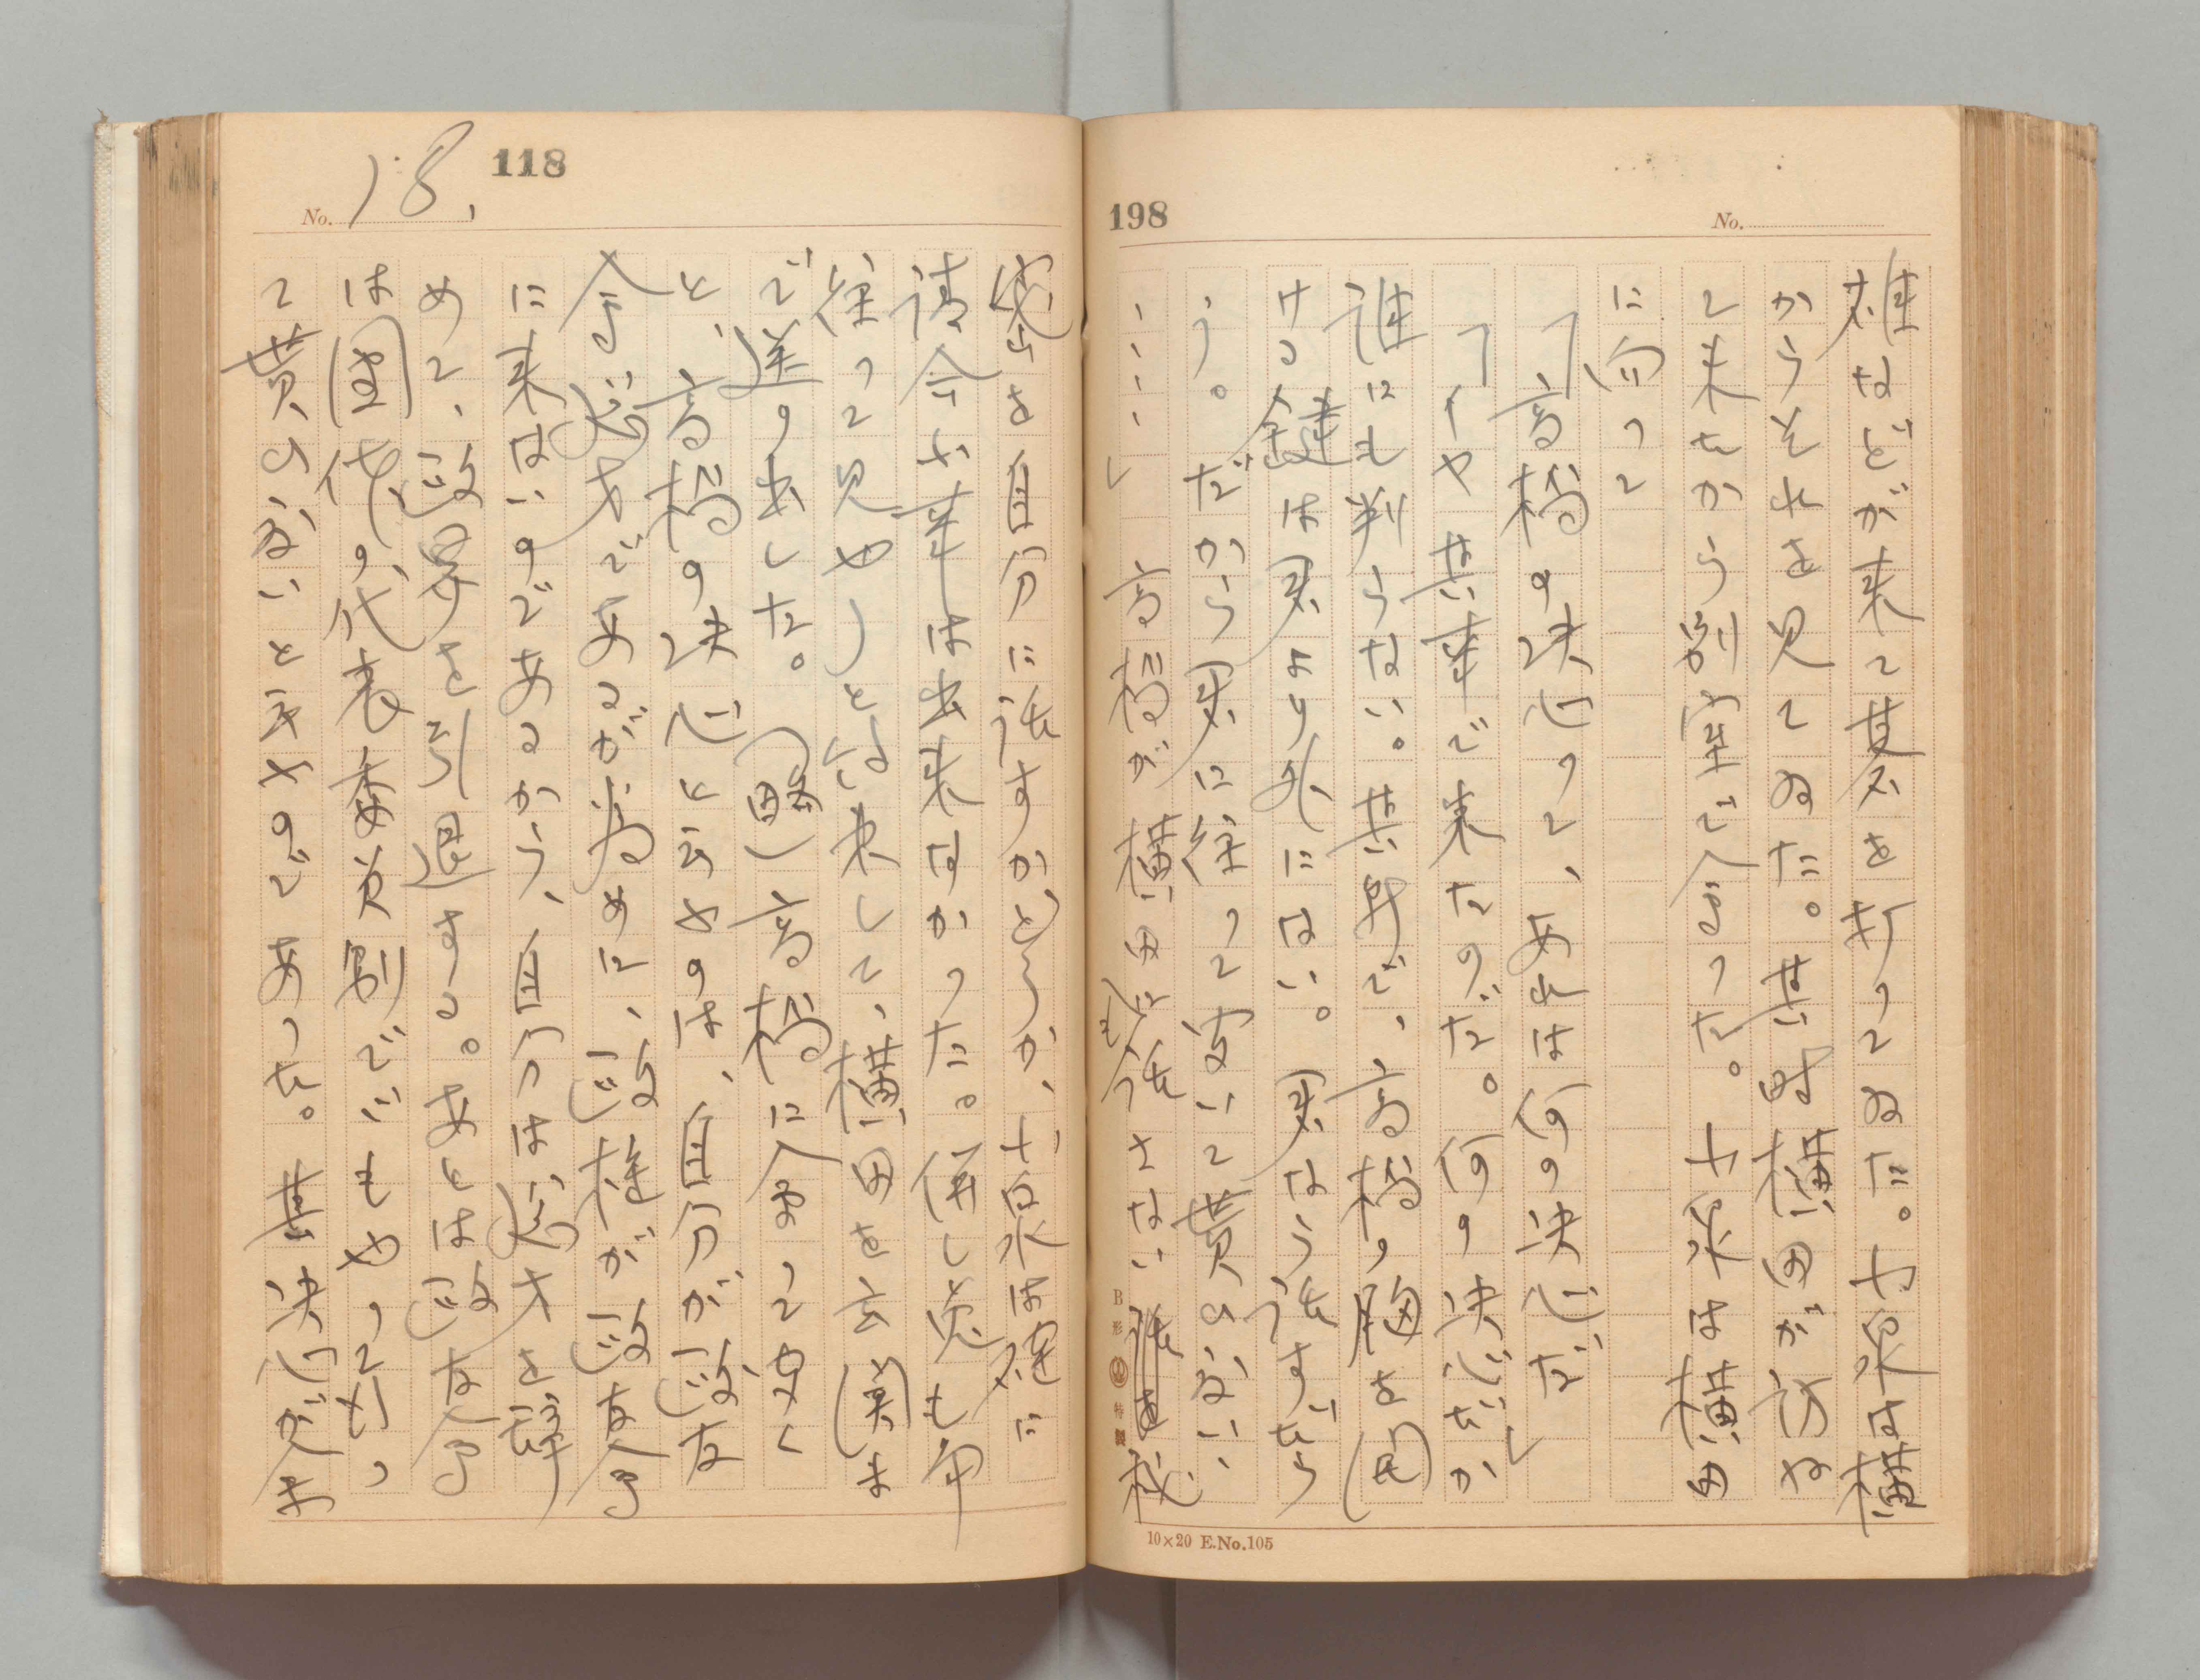 198
No.
雄などが来て碁を打つてゐた。小泉は横
からそれを見てゐた。其時横田が訪ね
て来たから別室で会つた。小泉は横田
に向つて
「高橋の決心つて、あれは何の決心だ」
「イヤ其事で来たのだ。何の決心だか
誰にも判らない。其処で、高橋の胸を開
ける鍵は君より外にはない。君なら話すだら
う。だから君に往つて聞いて貰ひたい、
‥‥」高橋が横田にも話さない
B形 特製
10×20 E.No.105
118
No. 18.
を自分に話すかどうか、小泉は確に
請合ふ事は出来なかつた。併し兎も角
往つて見やうと約束して、横田を玄関ま
で送り出した。(略)高橋に会つて聞く
と、高橋の決心と云ふのは、自分が政友
会総才であるが為めに、政権が政友会
に来ないのであるから、自分は総才を辞
めて、政界を引退する。あとは政友会
は代の代表委員制でゞもやつて行つ
て貰ひたいと云ふのであつた。其決心が余